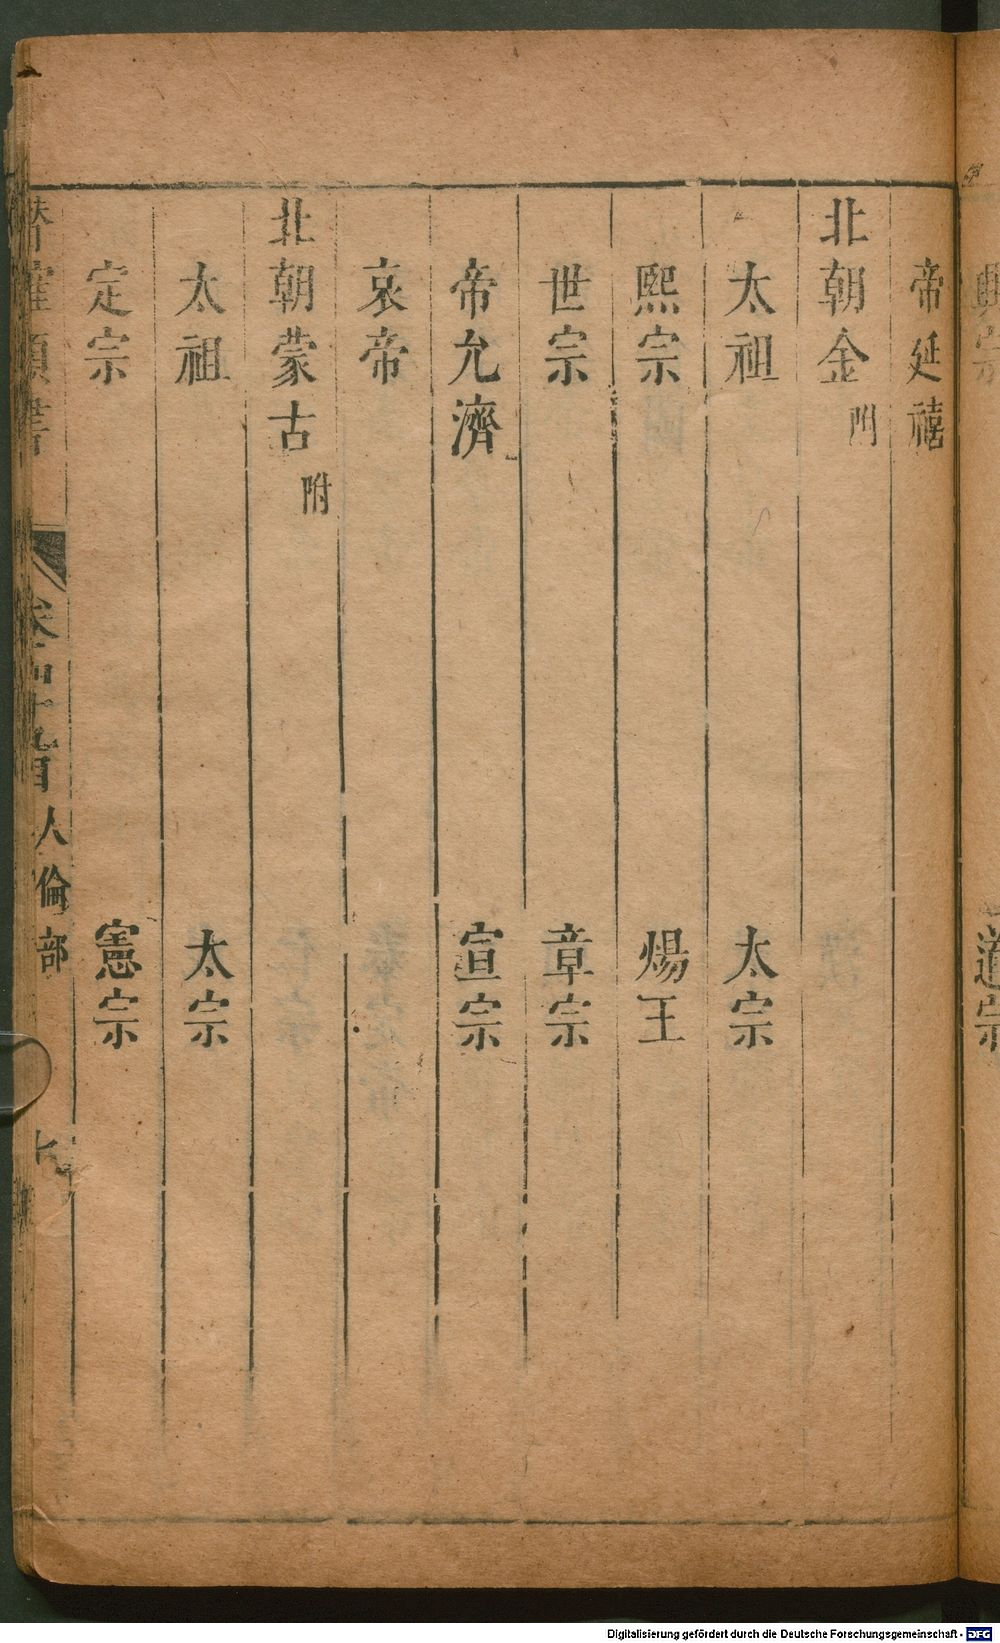 道宗
帝延禧
北朝金附
太祖 太宗
熙宗 煬王
世宗 章宗
帝允濟 宣宗
哀帝
北朝蒙古附
太祖 太宗
定宗 憲宗
潛確類書 卷四十九目 人倫部 七
Digitalisierung gefördert durch die Deutsche Forschungsgemeinschaft - DFG